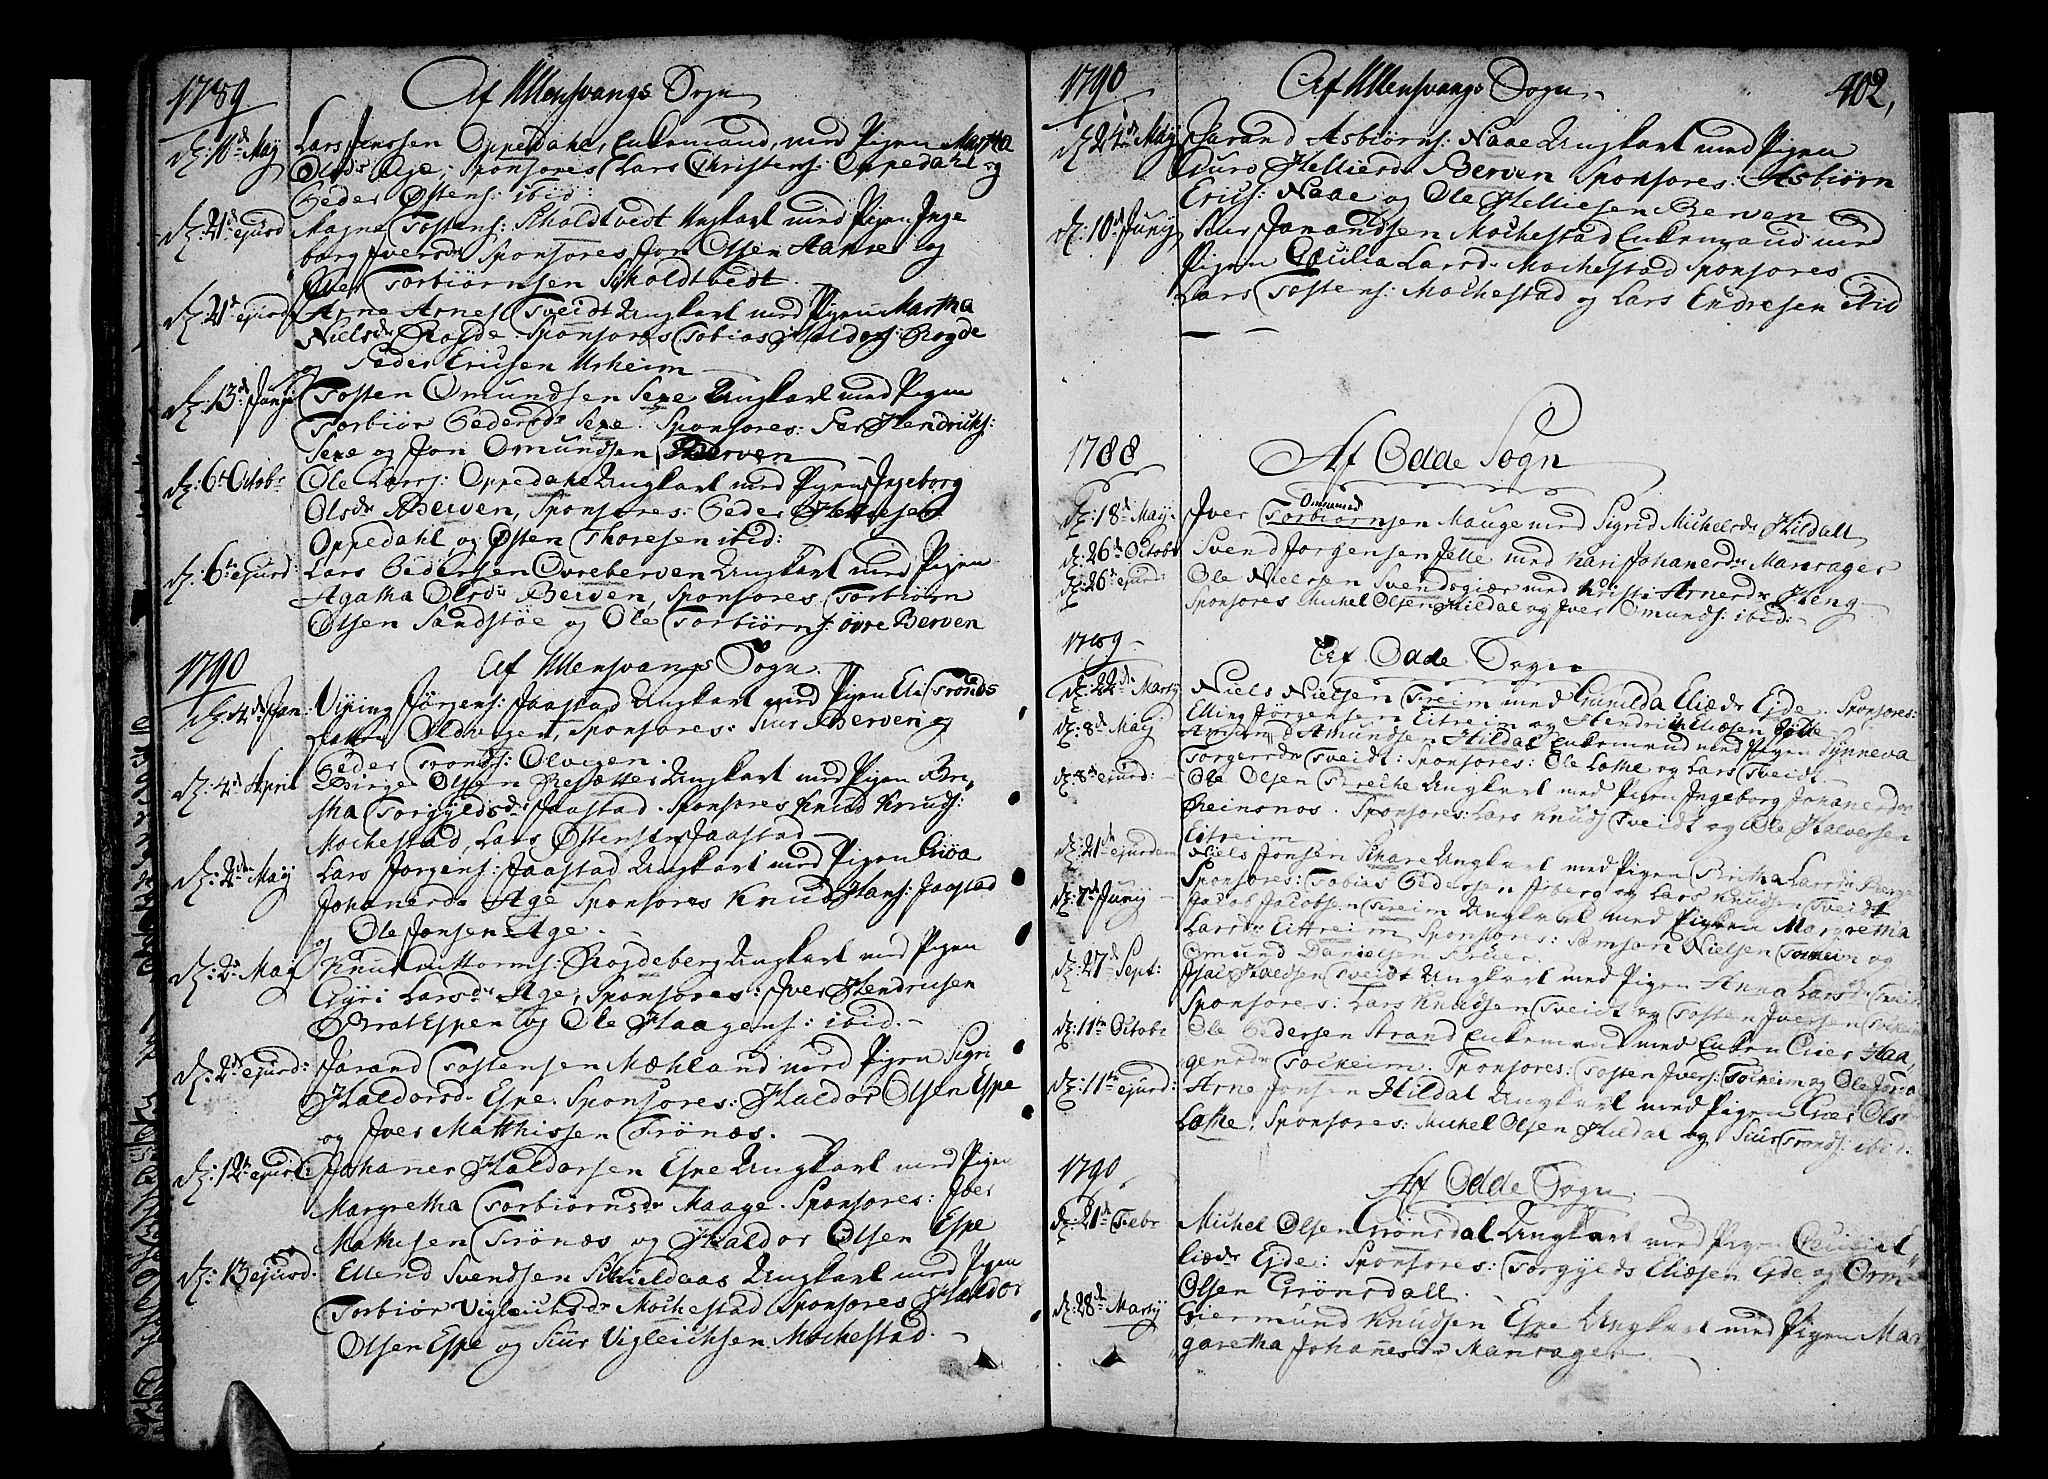 1789 Af Ullensvangs Sogn
dz: 10de Maj Lars Jenssen Oppedahl, Enkemand, med Pigen Martha
Olsdr Age, Sponsores Lars Christens: Oppedahl og
Peder Østens: ibid:
dz: 21de ejusd Magne Tostens: Skoldtvedt Ungkarl med Pigen Inge
borg Iversdr Sponsores Jon Olsen Hanne og
Iver Torbiørnsen Skoldtvedt.
dz: 21de ejusd Arne Arnes: Tveidt Ungkarl med Pigen Martha
Nielsdr Rogde Sponsores Tobias Haldors: Rogde
og Peder Ericsen Urheim
dz: 13de Junij Tosten Omundsen Sexe Ungkarl med Pigen
Torbiør Pedersdr Sexe. Sponsores: Per Hendrichs:
Sexe og Jon Omundsen Berven
dz: 6te Octobr Ole Larss: Oppedahl Ungkarl med Pigen Ingeborg
Olsdr Berven, Sponsores: Peder Helliesen
Oppedahl og Østen Thoresen ibid:
dz: 6te ejusd: Lars Pedersen Øvreberven Ungkarl med Pigen
Agatha Olsdr Berven, Sponsores Torbiørn
Olsen Sandstøe og Ole Torbiørns: øvre Berven
1790 Af Ullensvangs Sogn.
dz: 4de Jan: Viking Jørgens: Jaastad Ungkarl med Pigen Eli Tronds
datter Oldvigen, Sponsores: Siur Berven og
Peder Tronds: Olvigen.
dz: 4de April Birge Olsen Reisætter Ungkarl med Pigen Bri,,
tha Torgyldsdr: Jaastad. Sponsores Knud Knuds:
Mochestad, Lars Østensen Jaastad
dz: 2den Maij Lars Jorgens: Jaastad Ungkarl med Pigen Giøa
Johannesdr Age Sponsores Knud Hans: Jaastad
og Ole Jonsen Age.
dz: 2de Maij Knud Worms: Rogdeberg Ungkarl med Pigen
Gyri Larsdr Age, Sponsores: Iver Hendricsen
Bratespen og Ole Haagens: ibid.
dz: 2de ejusd: Jarand Tostensen Mæhland med Pigen Sigri
Haldorsd: Espe. Sponsores: Haldor Olsen Espe
og Iver Matthissen Trönæs.
dz: 12te ejusd: Johannes Haldorsen Espe Ungkarl med Pigen
Margretha Torbiørnsdr Maage. Sponsores: Iver
Mathisen Trönæs og Haldor Olsen Espe
dz: 13 ejusd. Ellend Svendsen Skieldaas Ungkarl med Pigen
Torbiør Viglichsdr Mochestad Sponsores Haldor
Olsen Espe og Siur Vigleichsen Mochestad.
1790 Af Ullensvangs Sogn 402,
dz: 24de Maij Jarand Asbiørns: Naae Ungkarl med Pigen
Guro Helliesdr Berven Sponsores: Asbiørn
Erics: Naae og Ole Helliesen Berven
dz: 10de Junij Siur Jarandsen Mochestad Enkemand med
Pigen Cecilia Larsdr Mochestad Sponsores
Lars Tostens: Mochestad og Lars Endresen ibid
1788 Af Odde Sogn
dz: 18de Maij Iver Ommund Torbiørnsen Mauge med Sigrid Michelsdr Hildall
dz: 26de Octobr Svend Jorgensen Jelle med Kari Johanesdr Mannsager
dz: 26de ejusd: Ole Nielsen Svendsgiær med Kristi Arnesdr Heng
Sponsores Michel Olsen Hildal og Iver Omunds: ibid:
1789 Af Odde Sogn
dz: 22de Martij Niels Nielsen Freim med Gunilda Eliædr Ejde. Sponsores:
Elling Jørgensen Eitreim og Hendrich Eliæsen Jelle
dz: 8de Maij Amund Amundsen Hildal Enkemand med Pigen Synneva
Torgersdr Tveidt: Sponsores: Ole Lothe og Lars Tveidt
dz: 8de ejusd: Ole Olsen Breche Ungkarl med Pigen Ingeborg Johanesdr
Reinsnos. Sponsores: Lars Knuds Tveidt og Ole Halversen
Eitreim
dz: 21de ejusdem Niels Jonsen Skare Ungkarl med Pigen Britha Larsdr Berge
Sponsores: Tobias Pedersen Isberg og Lars Knudsen Tveidt
dz: 7de Junij Jacob Jacobsen Freim Ungkarl med Pigen Margretha
Larsdr Eittreim Sponsores: Samson Nielsen Tocheim og
Omund Danielsen
dz: 27de Sept: Isac Haldsen Tveidt Ungkarl med Pigen Anna Larsdr Tveidt
Sponsores: Lars Knudsen Tveidt og Tosten Iversen Tocheim
dz: 11te Octobr Ole Pedersen Strand Enkemand med Enken Giøer Haa,
gensdr Tocheim. Sponsores: Tosten Ivers: Tocheim og Ole
dz: 11te ejusd: Arne Jonsen Hildal Ungkarl med Pigen Giøer Olsdr
Lothe. Sponsores: Michel Olsen Hildal og Siur Tronds: ibid.
1790 Af Odde Sogn
dz: 21de Febr Michel Olsen Grönsdal Ungkarl med Pigen Cecilia E,,
liædr Ejde: Sponsores: Torgylds Eliæsen Ejde og Orm
Olsen Grönsdall.
dz: 28de Martij Giermund Knudsen Espe Ungkarl med Pigen Mar
garetha Johannesdr Mannsager